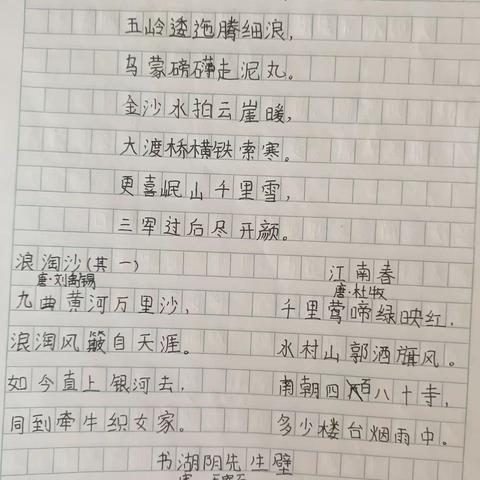 五岭逶迤腾细浪，
乌蒙磅礴走泥丸。
金沙水拍云崖暖，
大渡桥横铁索寒。
更喜岷山千里雪，
三军过后尽开颜。
浪淘沙(其一)
唐·刘禹锡
九曲黄河万里沙，
浪淘风簸自天涯。
如今直上银河去，
同到牵牛织女家。
江南春
唐·杜牧
千里莺啼绿映红，
水村山郭酒旗风。
南朝四百八十寺，
多少楼台烟雨中。
书湖阴先生壁